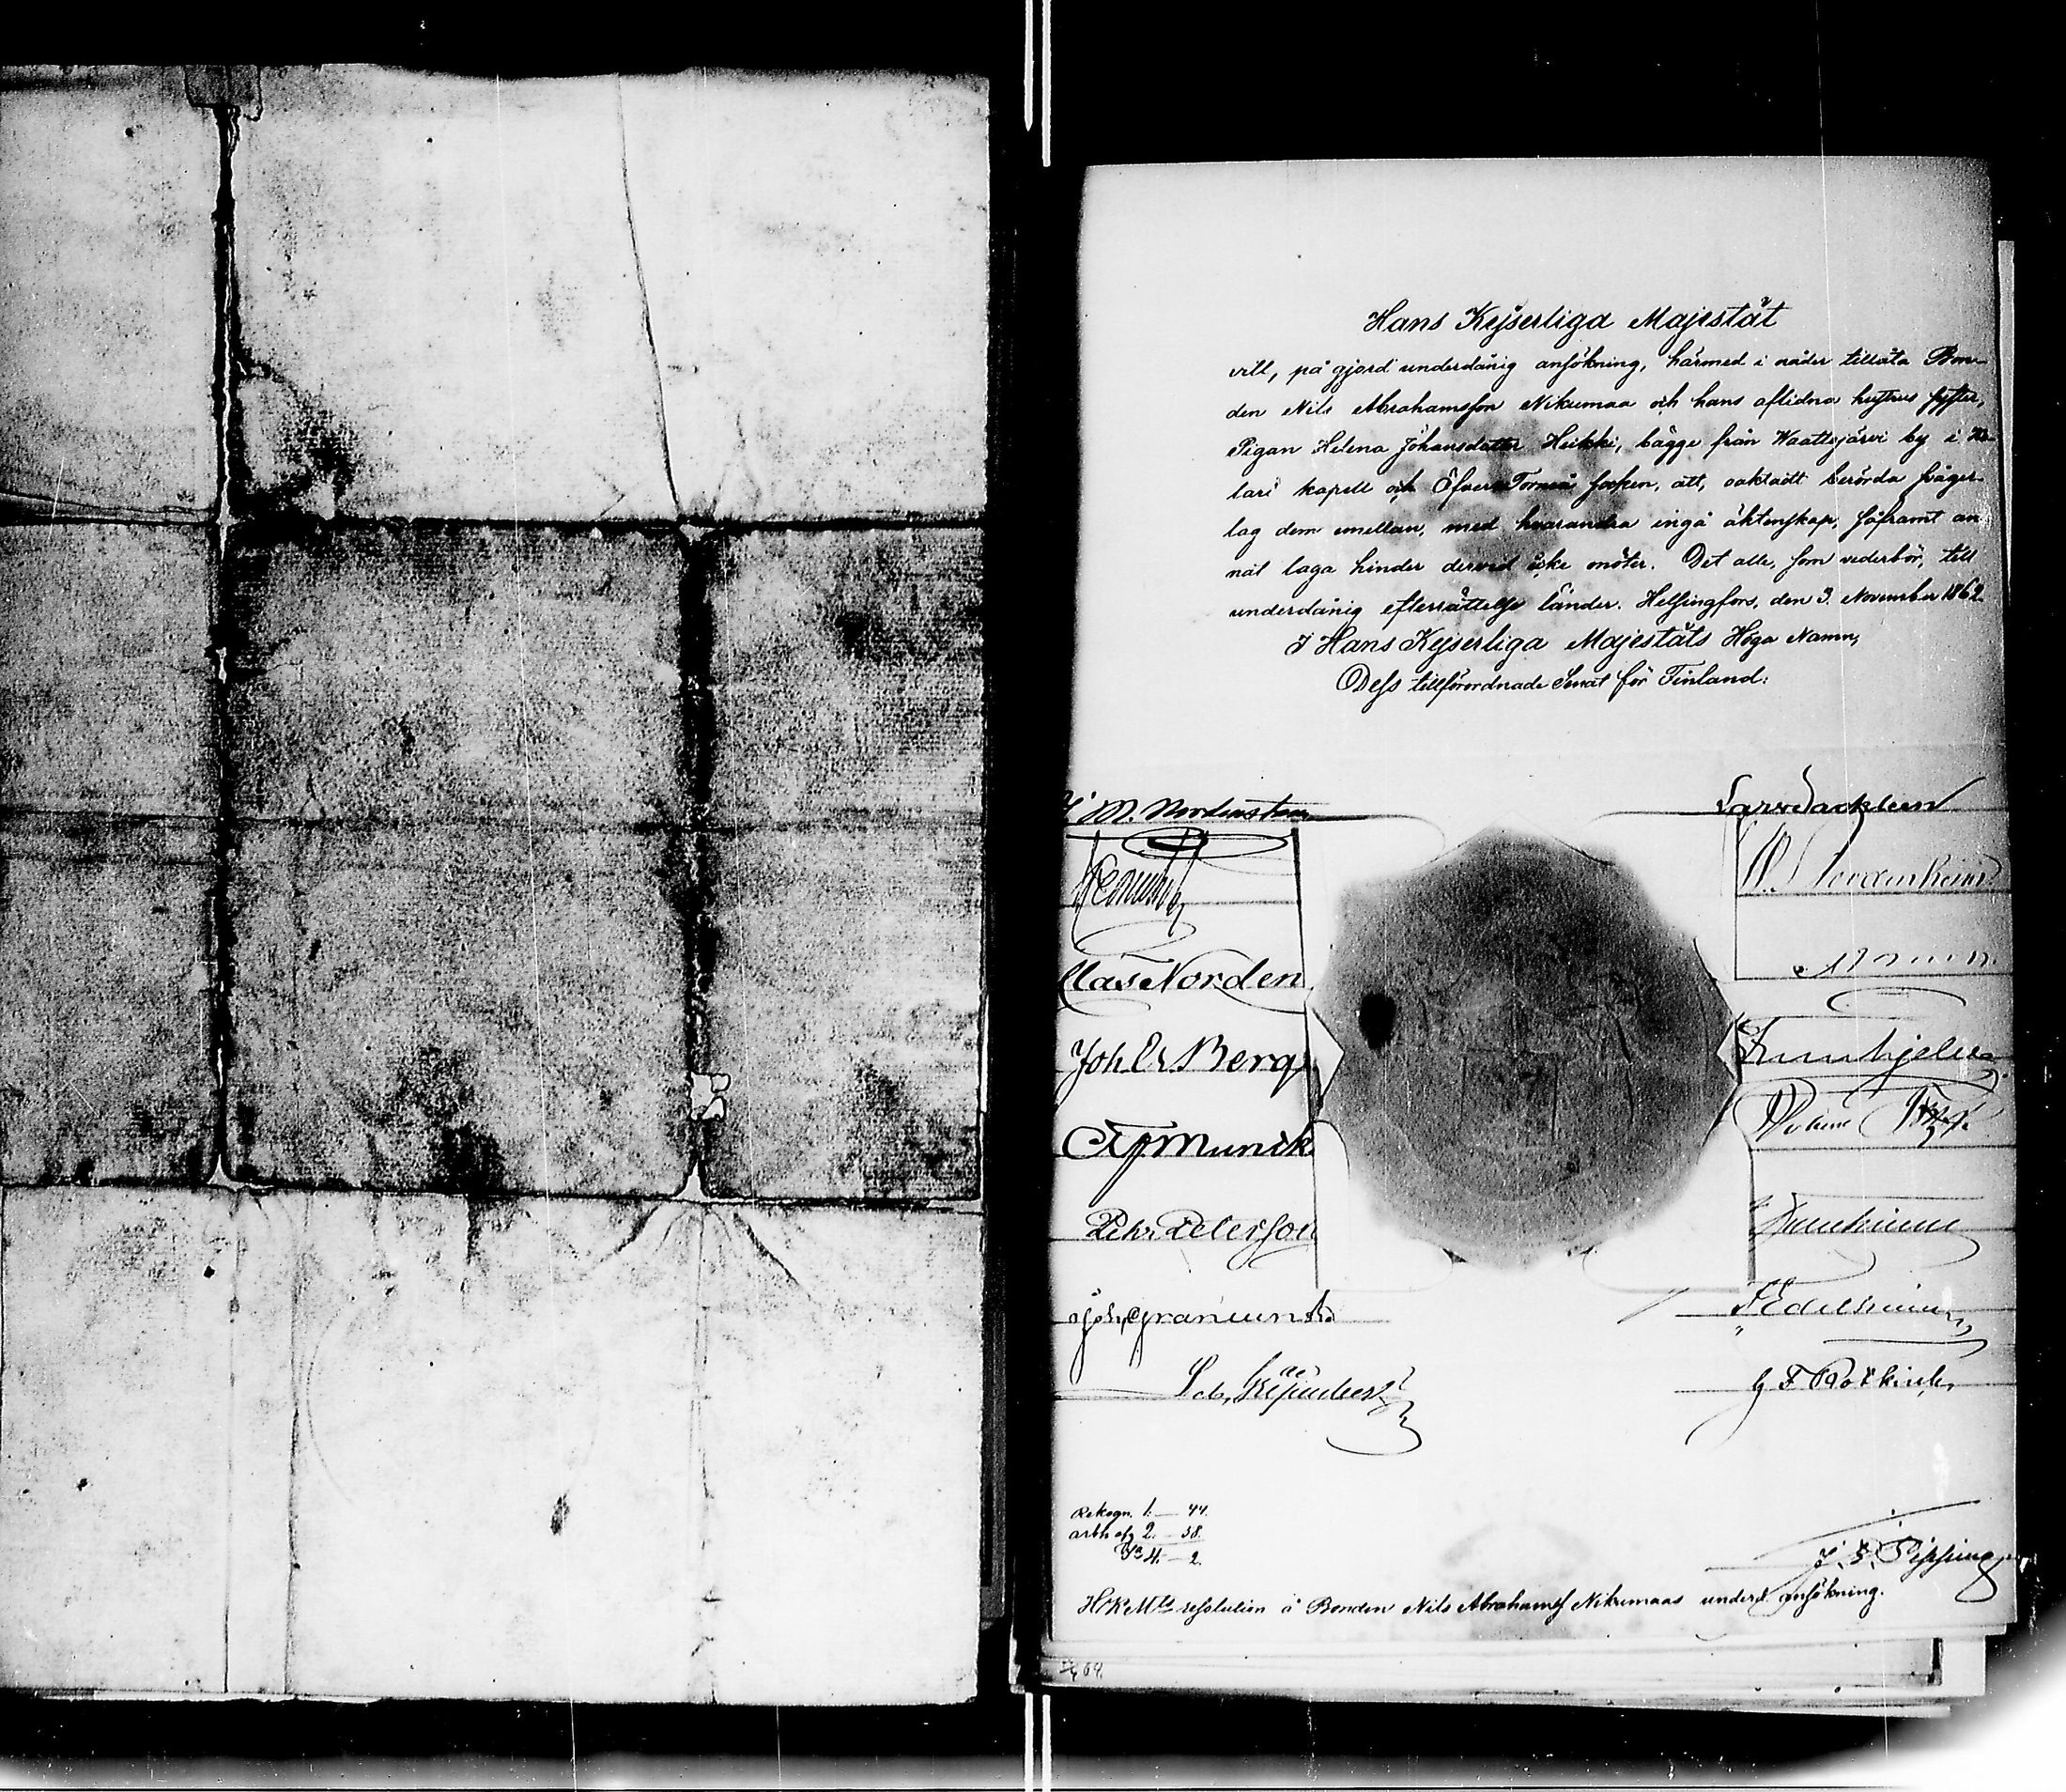 Hans Kejserliga Majestät
vill, på gjord underdånig ansökning, härmed i nåder tillåta Bon-
den Nils Abrahamsson Nikumaa och hans aflidna hustrus syster,
Pigan Helena Johansdotter Heikki, bägge från Waattojärvi by i Ko-
lari kapell och Öfvertorneå socken, att, oaktadt berörda svåger-
lag dem emellan, med hvarandra ingå äktenskap, såframt an-
nat laga hinder dervid icke möter. Det alle, som vederbör, till
underdånig efterrättelse länder. Helsingfors, den 3. November 1862.
I Hans Kejserliga Majestäts Höga Namn,
Dess tillförordnade Senat för Finland:
J. M. Nordenstam
Lars Sackleen
Clas Norden
Joh. Er. Berg
A. G. Munck
Pehr Petersson
Joh. Granlund
F. Edelheim
G. F. Rotkirch
Rekogn. 1. — 44.
arbh afg 2. — 58.
4. — 2.
J. E. Pipping
HKMts resolution å Bonden Nils Abrahamss Nikumaas underd. ansökning.